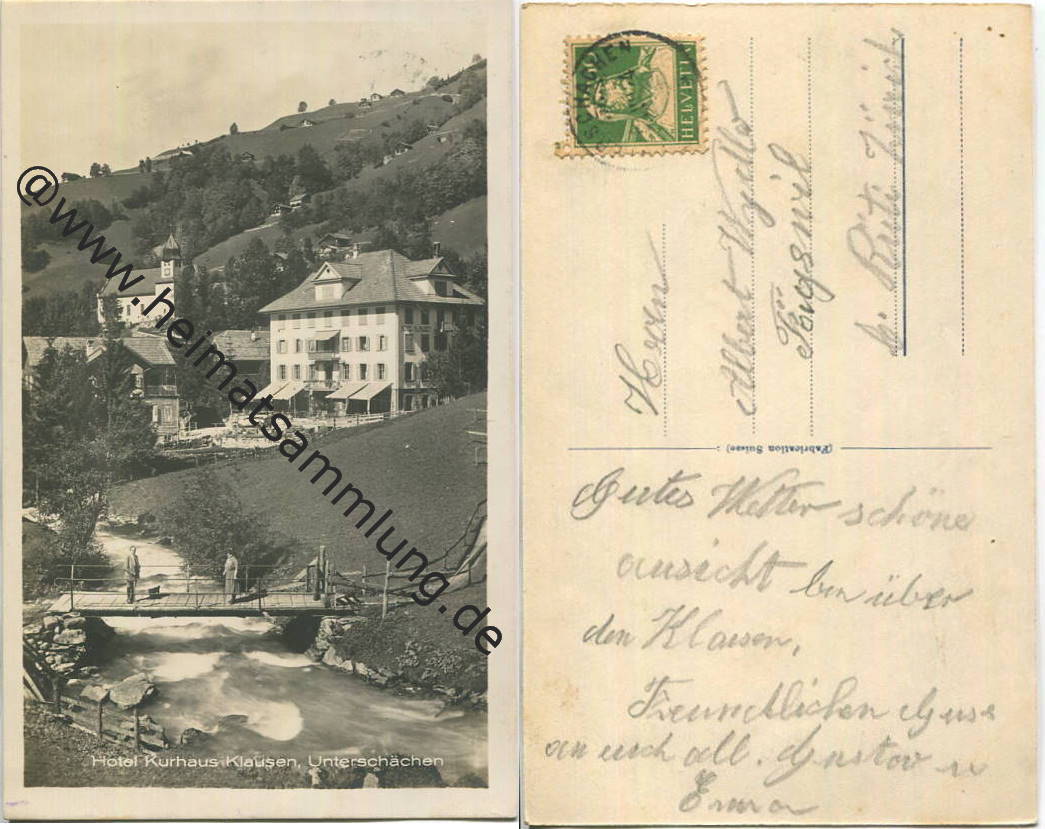 @www.heimatsammlung.de
Hotel Kurhaus Klausen, Unterschächen
HELVETIA
Herrn
Albert
b. Rüti
(Fabrication Suisse)
Gutes Wetter schöne
ausicht bin über
den Klausen,
Freundlichen Gruss
an euch all. Gustav u
Emma